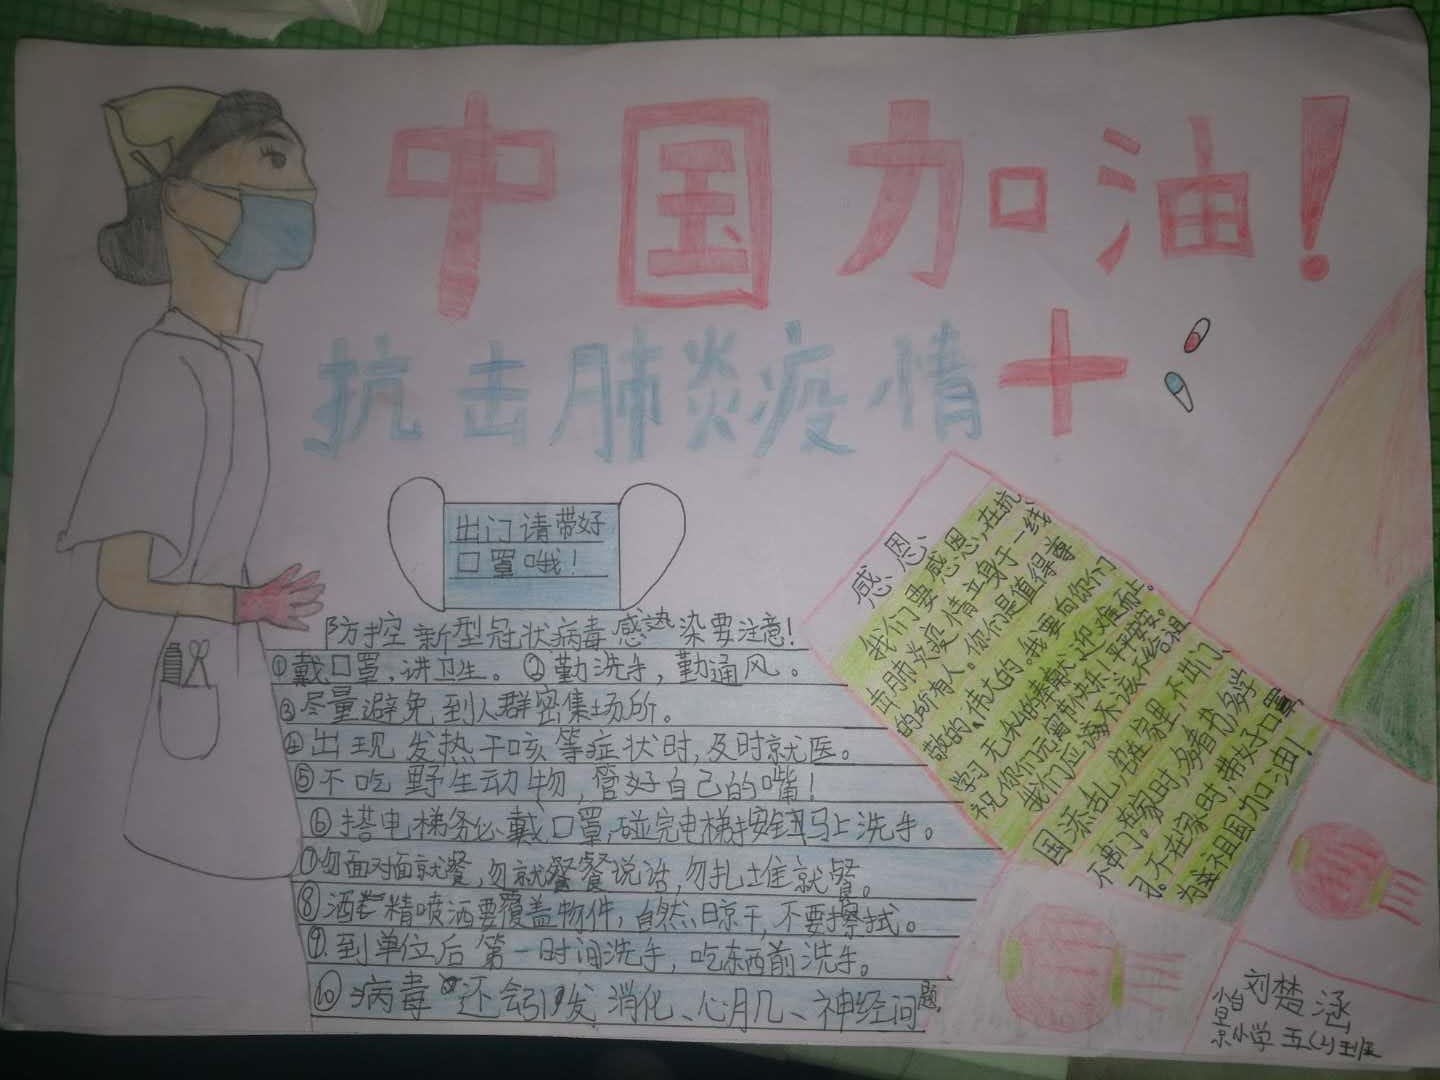 中国加油！
抗击肺炎疫情
出门请带好
口罩哦！
防控新型冠状病毒感热染要注意！
①戴口罩，讲卫生。②勤洗手，勤通风。
③尽量避免到人群密集场所。
④出现发热干咳等症状时，及时就医。
⑤不吃野生动物，管好自己的嘴！
⑥搭电梯务必戴口罩，碰完电梯按钮马上洗手。
⑦勿面对面就餐，勿就餐说话，勿扎堆就餐。
⑧酒精喷洒要覆盖物件，自然晾干，不要擦拭。
⑨.到单位后第一时间洗手，吃东西前洗手。
⑩病毒还会引发消化、心肌、神经问题，
感恩，
我们要感恩，在抗
击肺炎疫情立身于一线
的所有人。你们是值得尊
敬的、伟大的。我要向你们
学习无休的奉献，迎难而上。
祝你们元宵节快乐！平平安安。
我们应该不应该不给祖
国添乱，宅在家里，不出门、
不串门。在家时，多看书，多学
习。不在家时，带好口罩
为我祖国加油！
刘楚涵
小学五(2)班